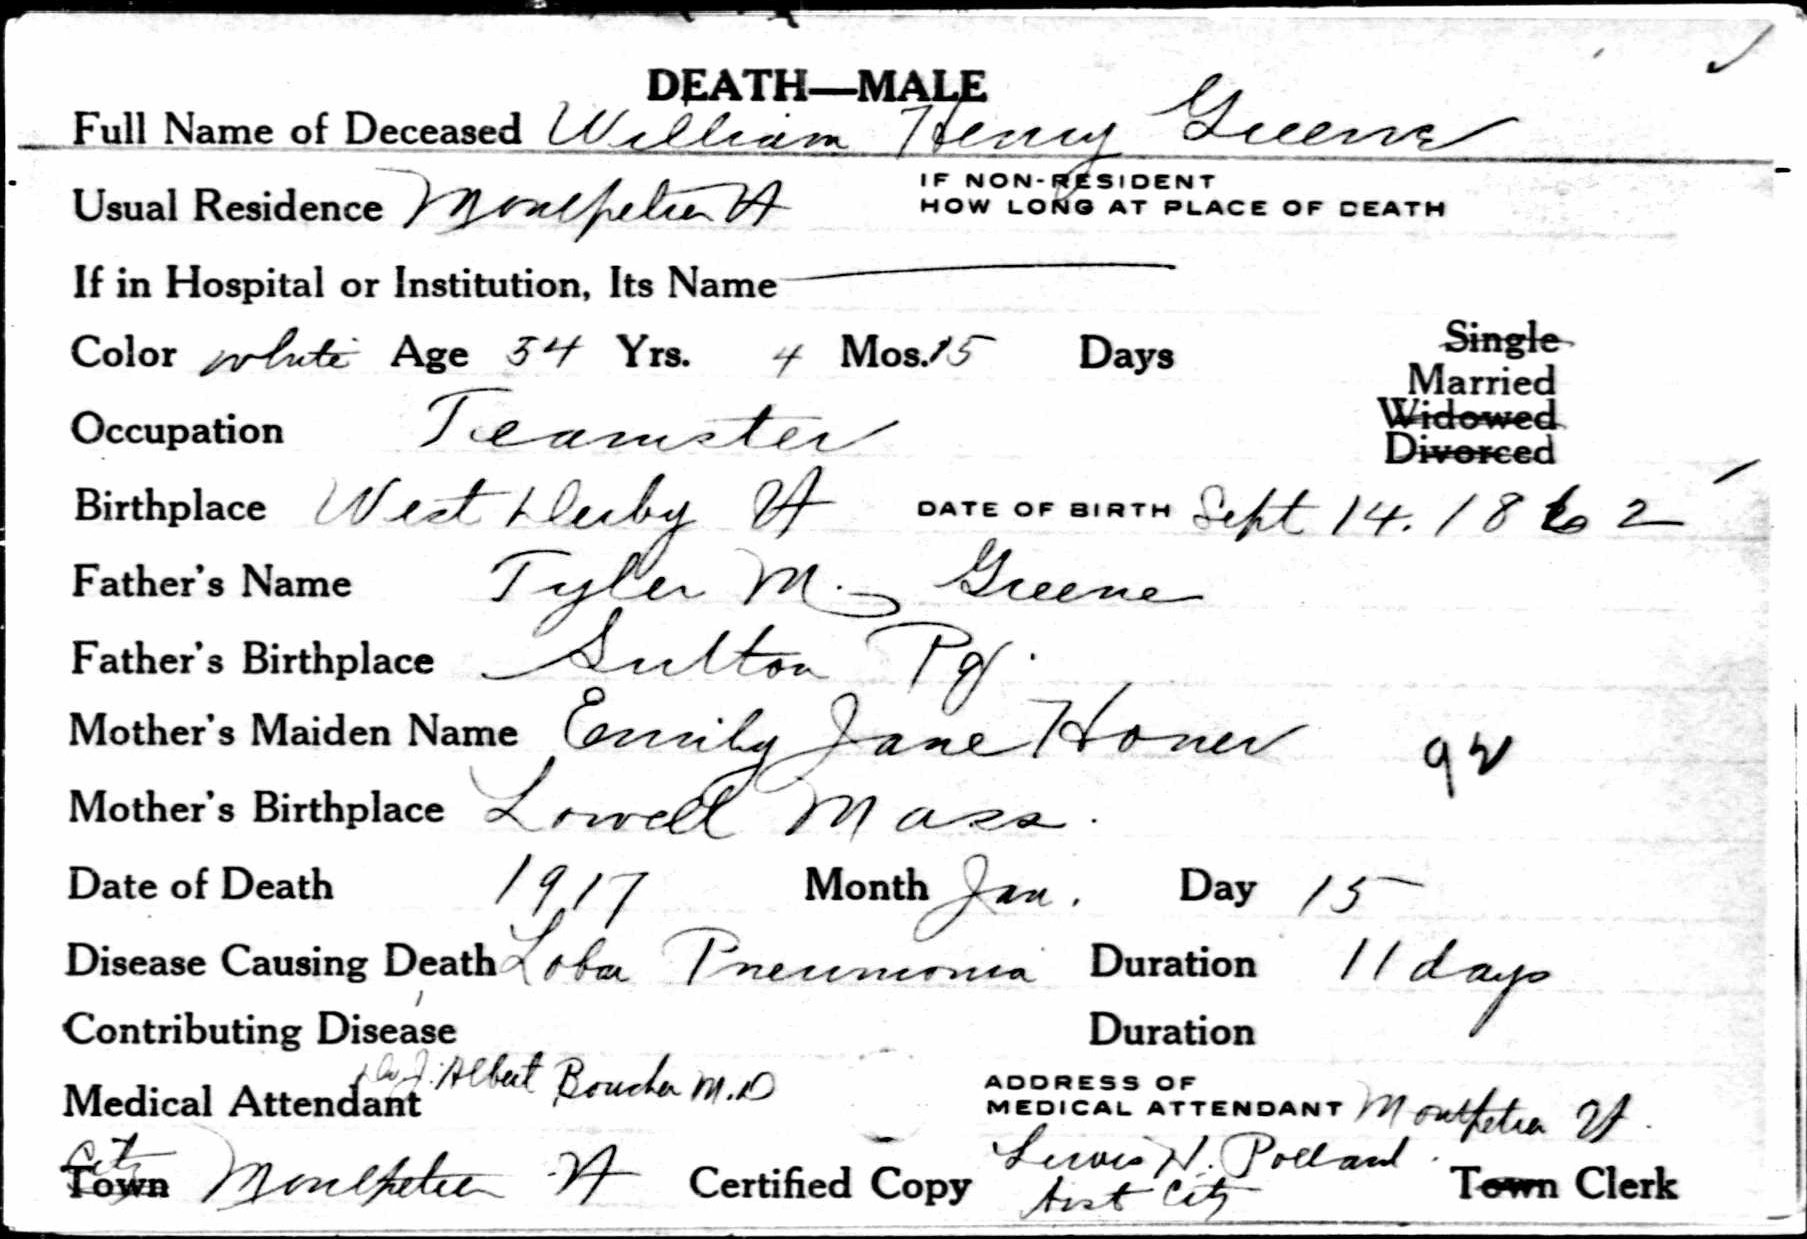 DEATH—MALE
Full Name of Deceased William Henry Greene
Usual Residence Montpelier Vt IF NON-RESIDENT
HOW LONG AT PLACE OF DEATH
If in Hospital or Institution, Its Name
Color white Age 54 Yrs. 4 Mos. 15 Days
Single
Married
Widowed
Divorced
Occupation Teamster
Birthplace West Derby Vt DATE OF BIRTH Sept 14. 1862
Father's Name Tyler M. Greene
Father's Birthplace Sutton P.Q.
Mother's Maiden Name Emily Jane Honer
92
Mother's Birthplace Lowell Mass.
Date of Death 1917 Month Jan. Day 15
Disease Causing Death Lobar Pneumonia Duration 11 days
Contributing Disease Duration
Medical Attendant J. Albert Boucher M.D
ADDRESS OF
MEDICAL ATTENDANT Montpelier Vt.
City
Town Montpelier Vt Certified Copy Lewis N. Pollard.
Asst City Town Clerk